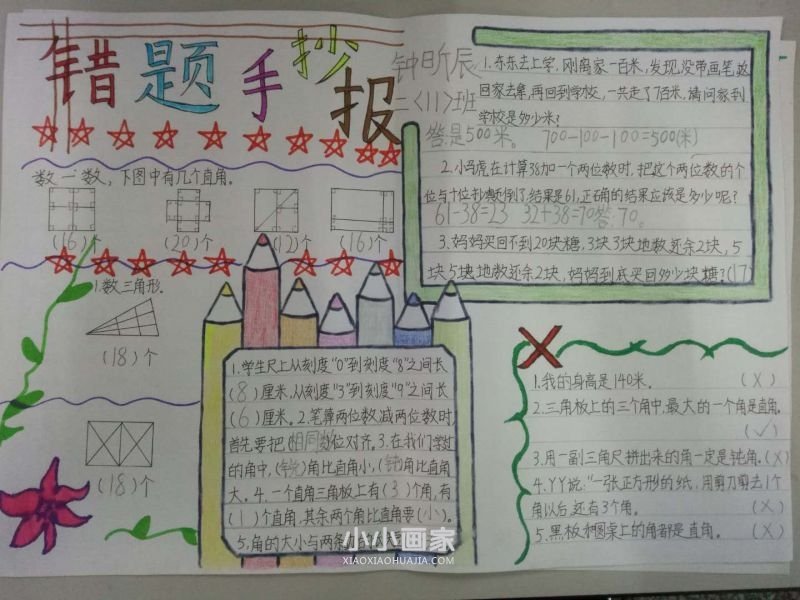 错题手抄报
钟昕辰
二〈11〉班
数一数，下图中有几个直角。
(16)个 (20)个 (12)个 (16)个
1.数三角形.
(18)个
(18)个
1.东东去上学，刚离家一百米，发现没带画笔，返
回家去拿，再回到学校，一共走了700米，请问家到
学校是多少米？
答：是500米。 700-100-100=500(米)
2.小马虎在计算38加一个两位数时，把这个两位数的个
位与十位抄颠倒了，结果是61，正确的结果应该是多少呢？
61-38=23 32+38=70答：70。
3.妈妈买回不到20块糖，3块3块地数还余2块，5
块5块地数还余2块，妈妈到底买回多少块糖？(17)
1.学生尺上从刻度"0"到刻度"8"之间长
(8)厘米，从刻度"3"到刻度"9"之间长
(6)厘米。2.笔算两位数减两位数时，
首先要把(相同数)位对齐。3.在我们学过
的角中，(锐)角比直角小，(钝)角比直角
大。4.一个直角三角板上有(3)个角，有
(1)个直角，其余两个角比直角要(小)。
5.角的大小与两条
小小画家
XIAOXIAOHUAJIA.COM
1.我的身高是140米。 (X)
2.三角板上的三个角中，最大的一个角是直角.
(✓)
3.用一副三角尺拼出来的角一定是钝角.(X)
4.丫丫说："一张正方形的纸，用剪刀剪去1个
角以后，还有3个角。 (X)
5.黑板和圆桌上的角都是直角。 (X)